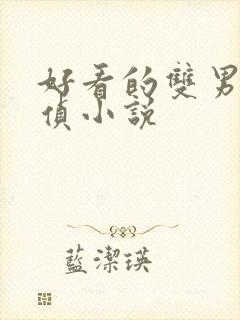 好看的雙男
偵小説
藍潔瑛